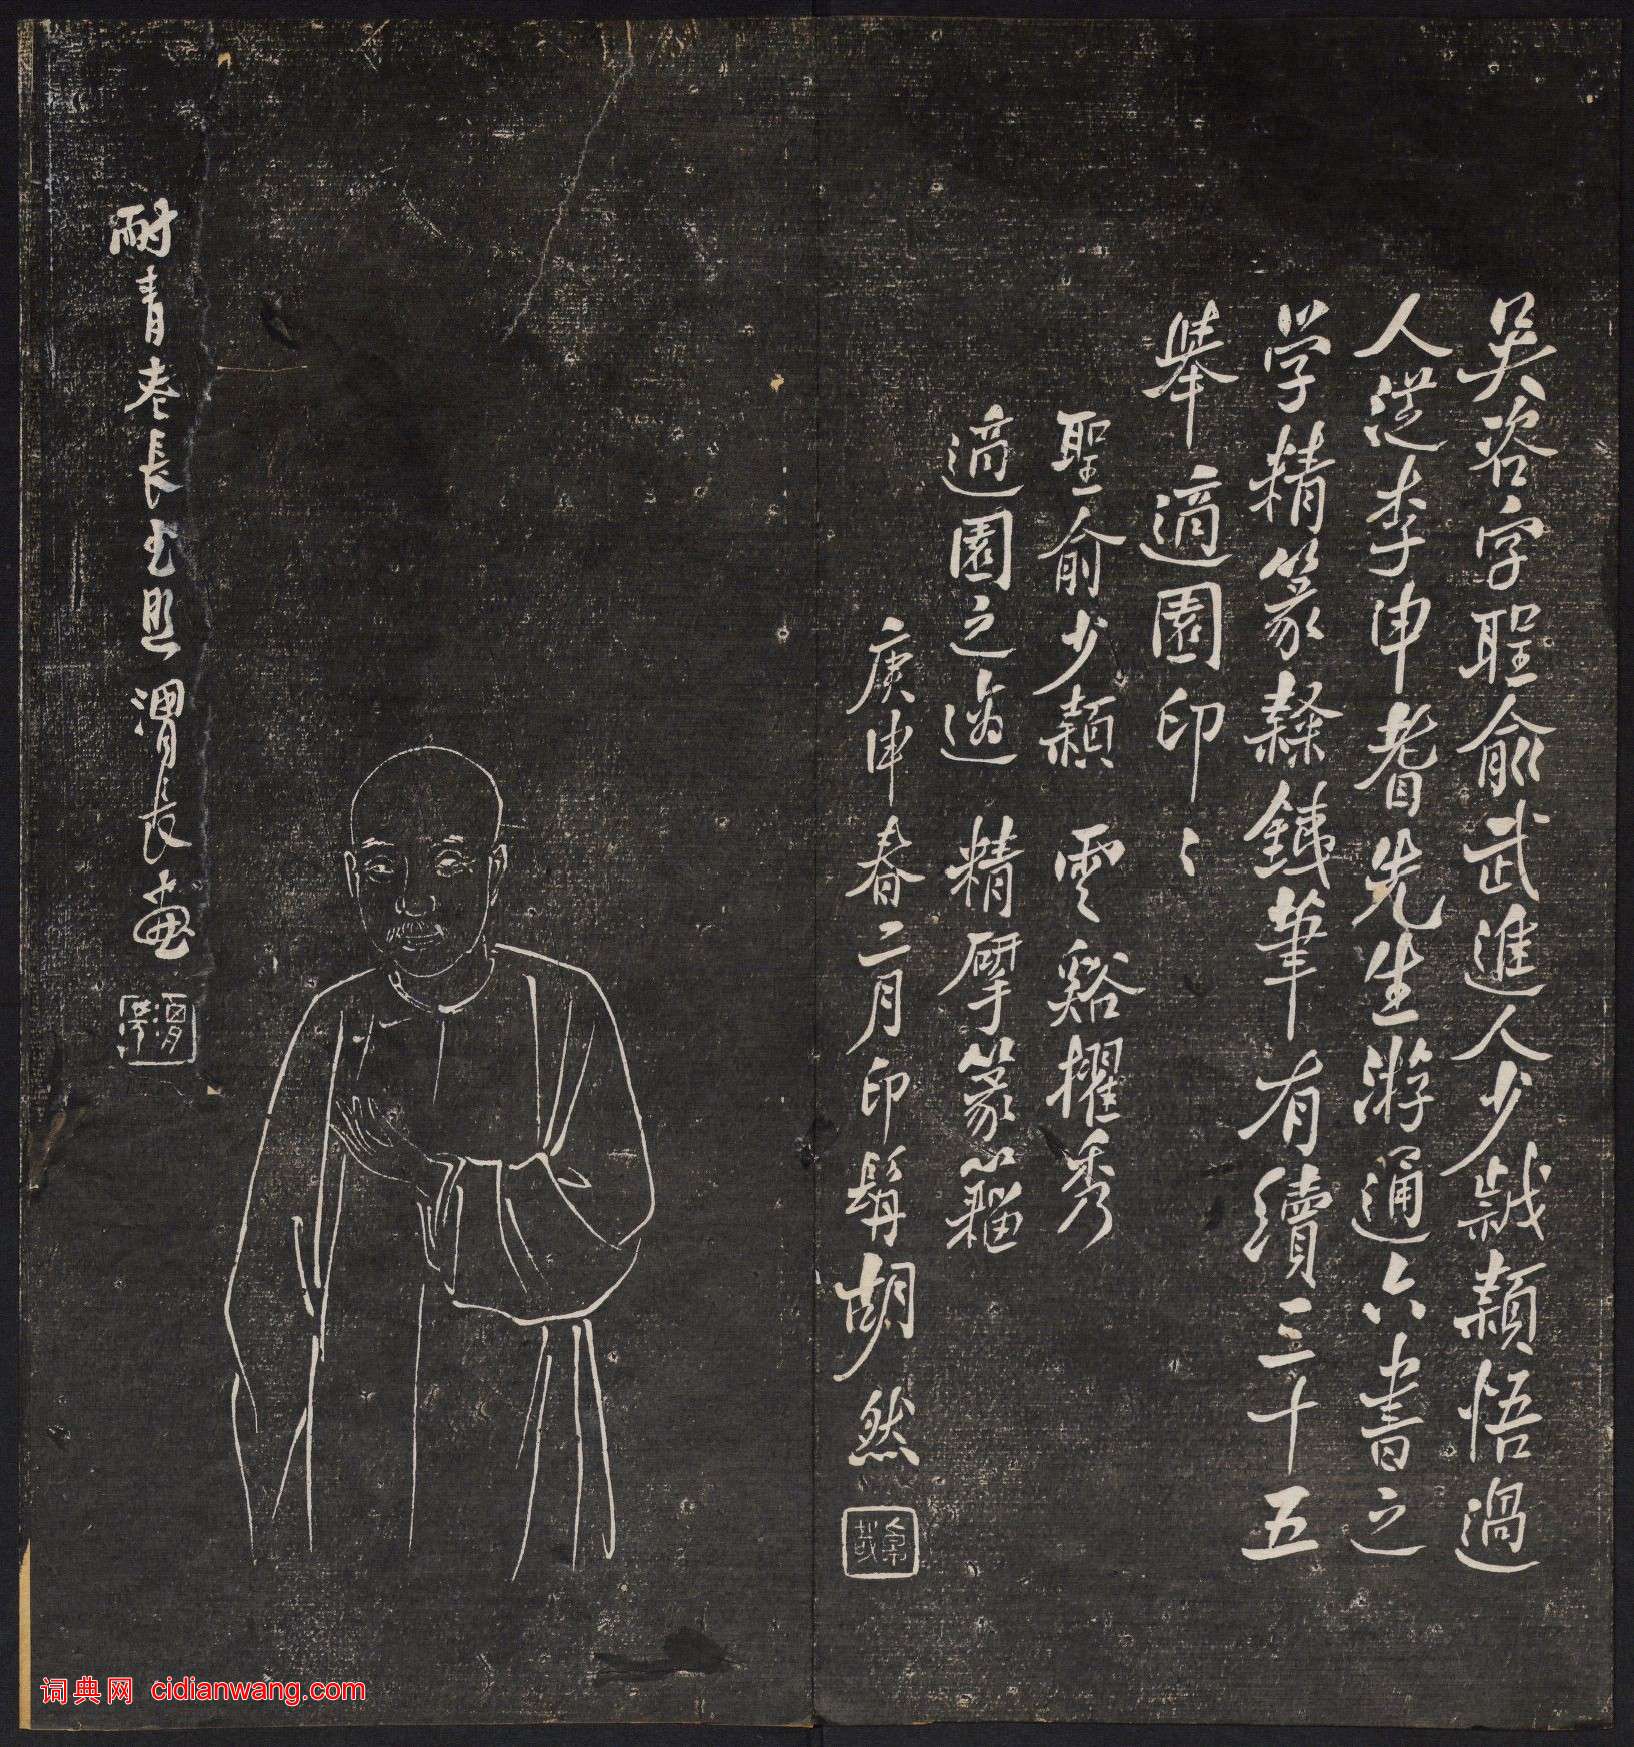 吴咨字聖俞武進人少誠穎悟過
人從李申耆先生游通六書之
学精篆隸鐵筆有續三十五
舉適園印〻
聖俞少穎 雲谿擢秀
適園之適 精揅篆籀
庚申春二月印髯胡然
耐青老長兄照 渭長画
词典网 cidianwang.com